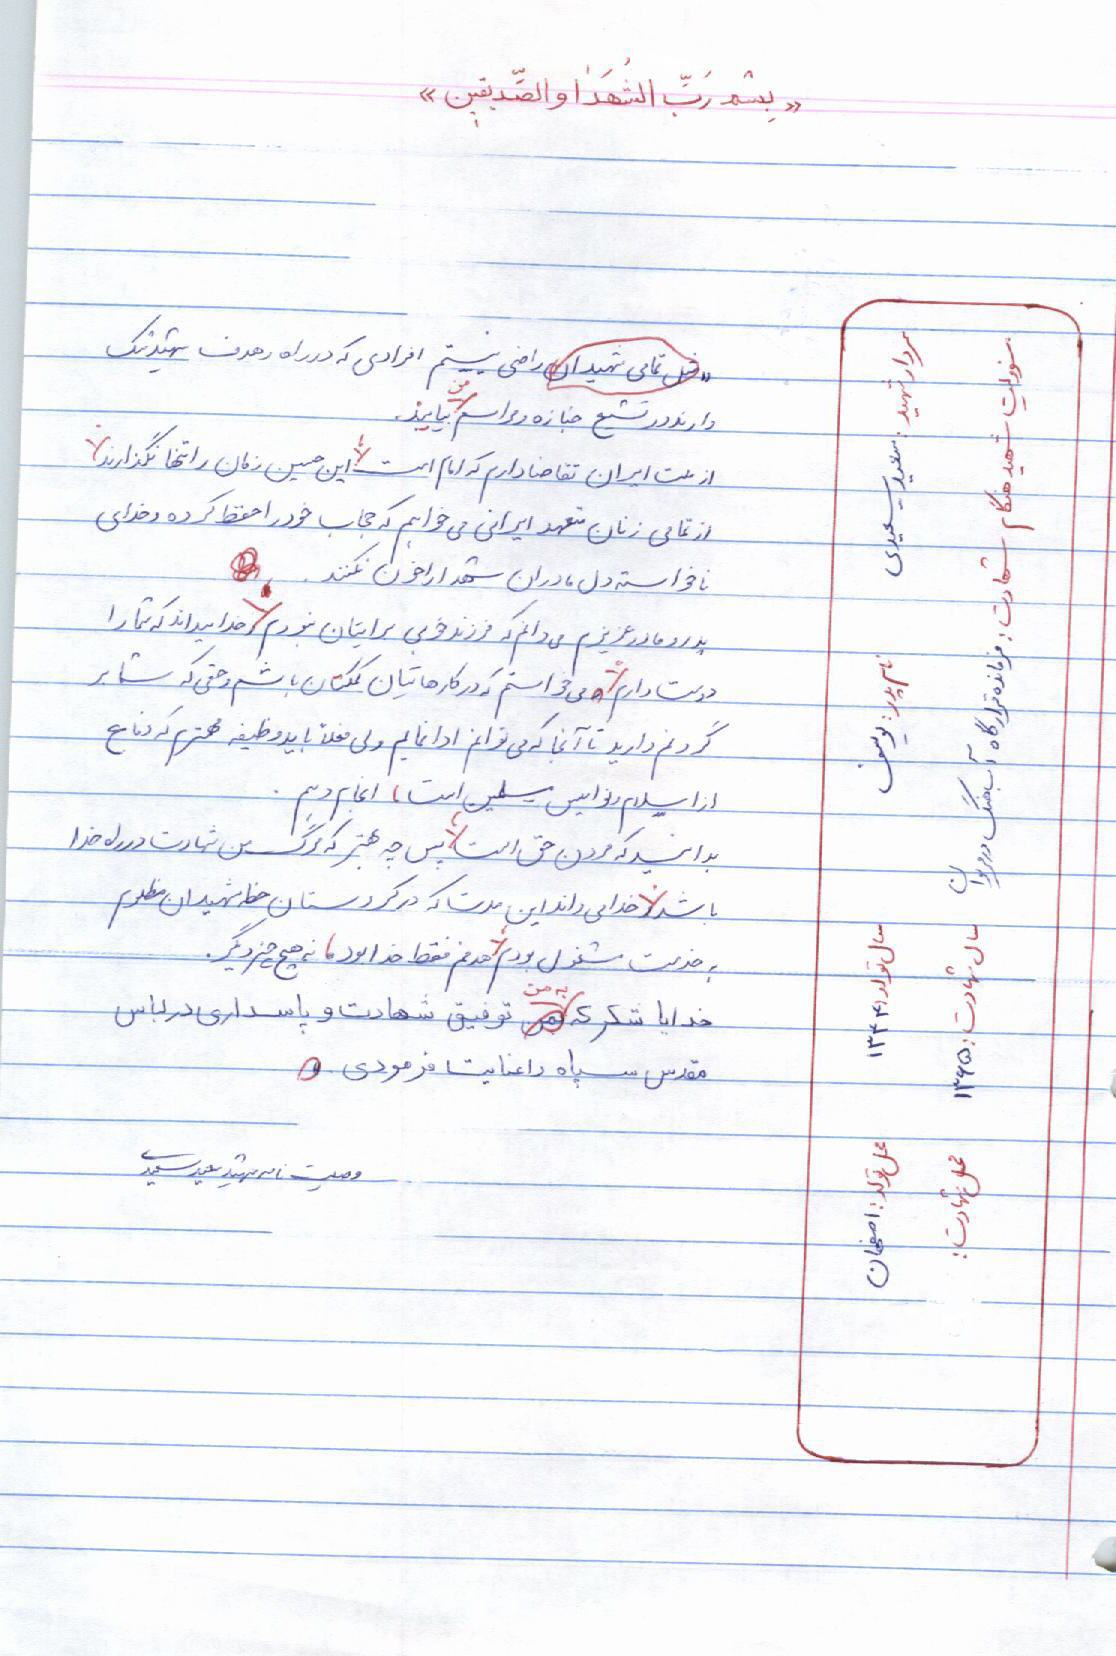 «بِسْمِ رَبِّ الشُّهَدَاٰ وَ الصِّدیقینِ»
سردار شهید: سعید سعیدی نام پدر: یوسف سال تولد: ۱۳۴۱ محل تولد: اصفهان
مسئولیت شهید هنگام شهادت: فرمانده قرارگاه آب جنگ در مریوان سال شهادت: ۱۳۶۵ محل شهادت:
«مثل تمامی شهیدان راضی نیستم افرادی که در راه و هدف شهید شک
دارند در تشیع جنازه و مراسم من بیایند.
از ملت ایران تقاضا دارم که امام است، این حسین زمان را تنها نگذارند.
از تمامی زنان متعهد ایرانی می خواهم که حجاب خود را حفظ کرده و خدای
ناخواسته دل مادران شهدا را خون نکنند.
پدر و مادر عزیزم می دانم که فرزند خوبی برایتان نبودم و خدا میداند که شما را
دوست دارم و می خواستم که در کارهایتان کمکتان باشم و حقی که شما بر
گردنم دارید تا آنجا که می توانم ادا نمایم ولی فعلاً باید وظیفه مهمترم که دفاع
از اسلام و نوامیس مسلمین است، انجام دهم.
بدانید که مردن حق است، پس چه بهتر که مرگ من شهادت در راه خدا
باشد. خدا می داند این مدت که در کردستان خطه شهیدان مظلوم
به خدمت مشغول بودم هدفم فقط خدا بود، نه هیچ چیز دیگر.
خدایا شکر که به من توفیق شهادت و پاسداری در لباس
مقدس سپاه را عنایت فرمودی.
وصیت نامه شهید سعید سعیدی